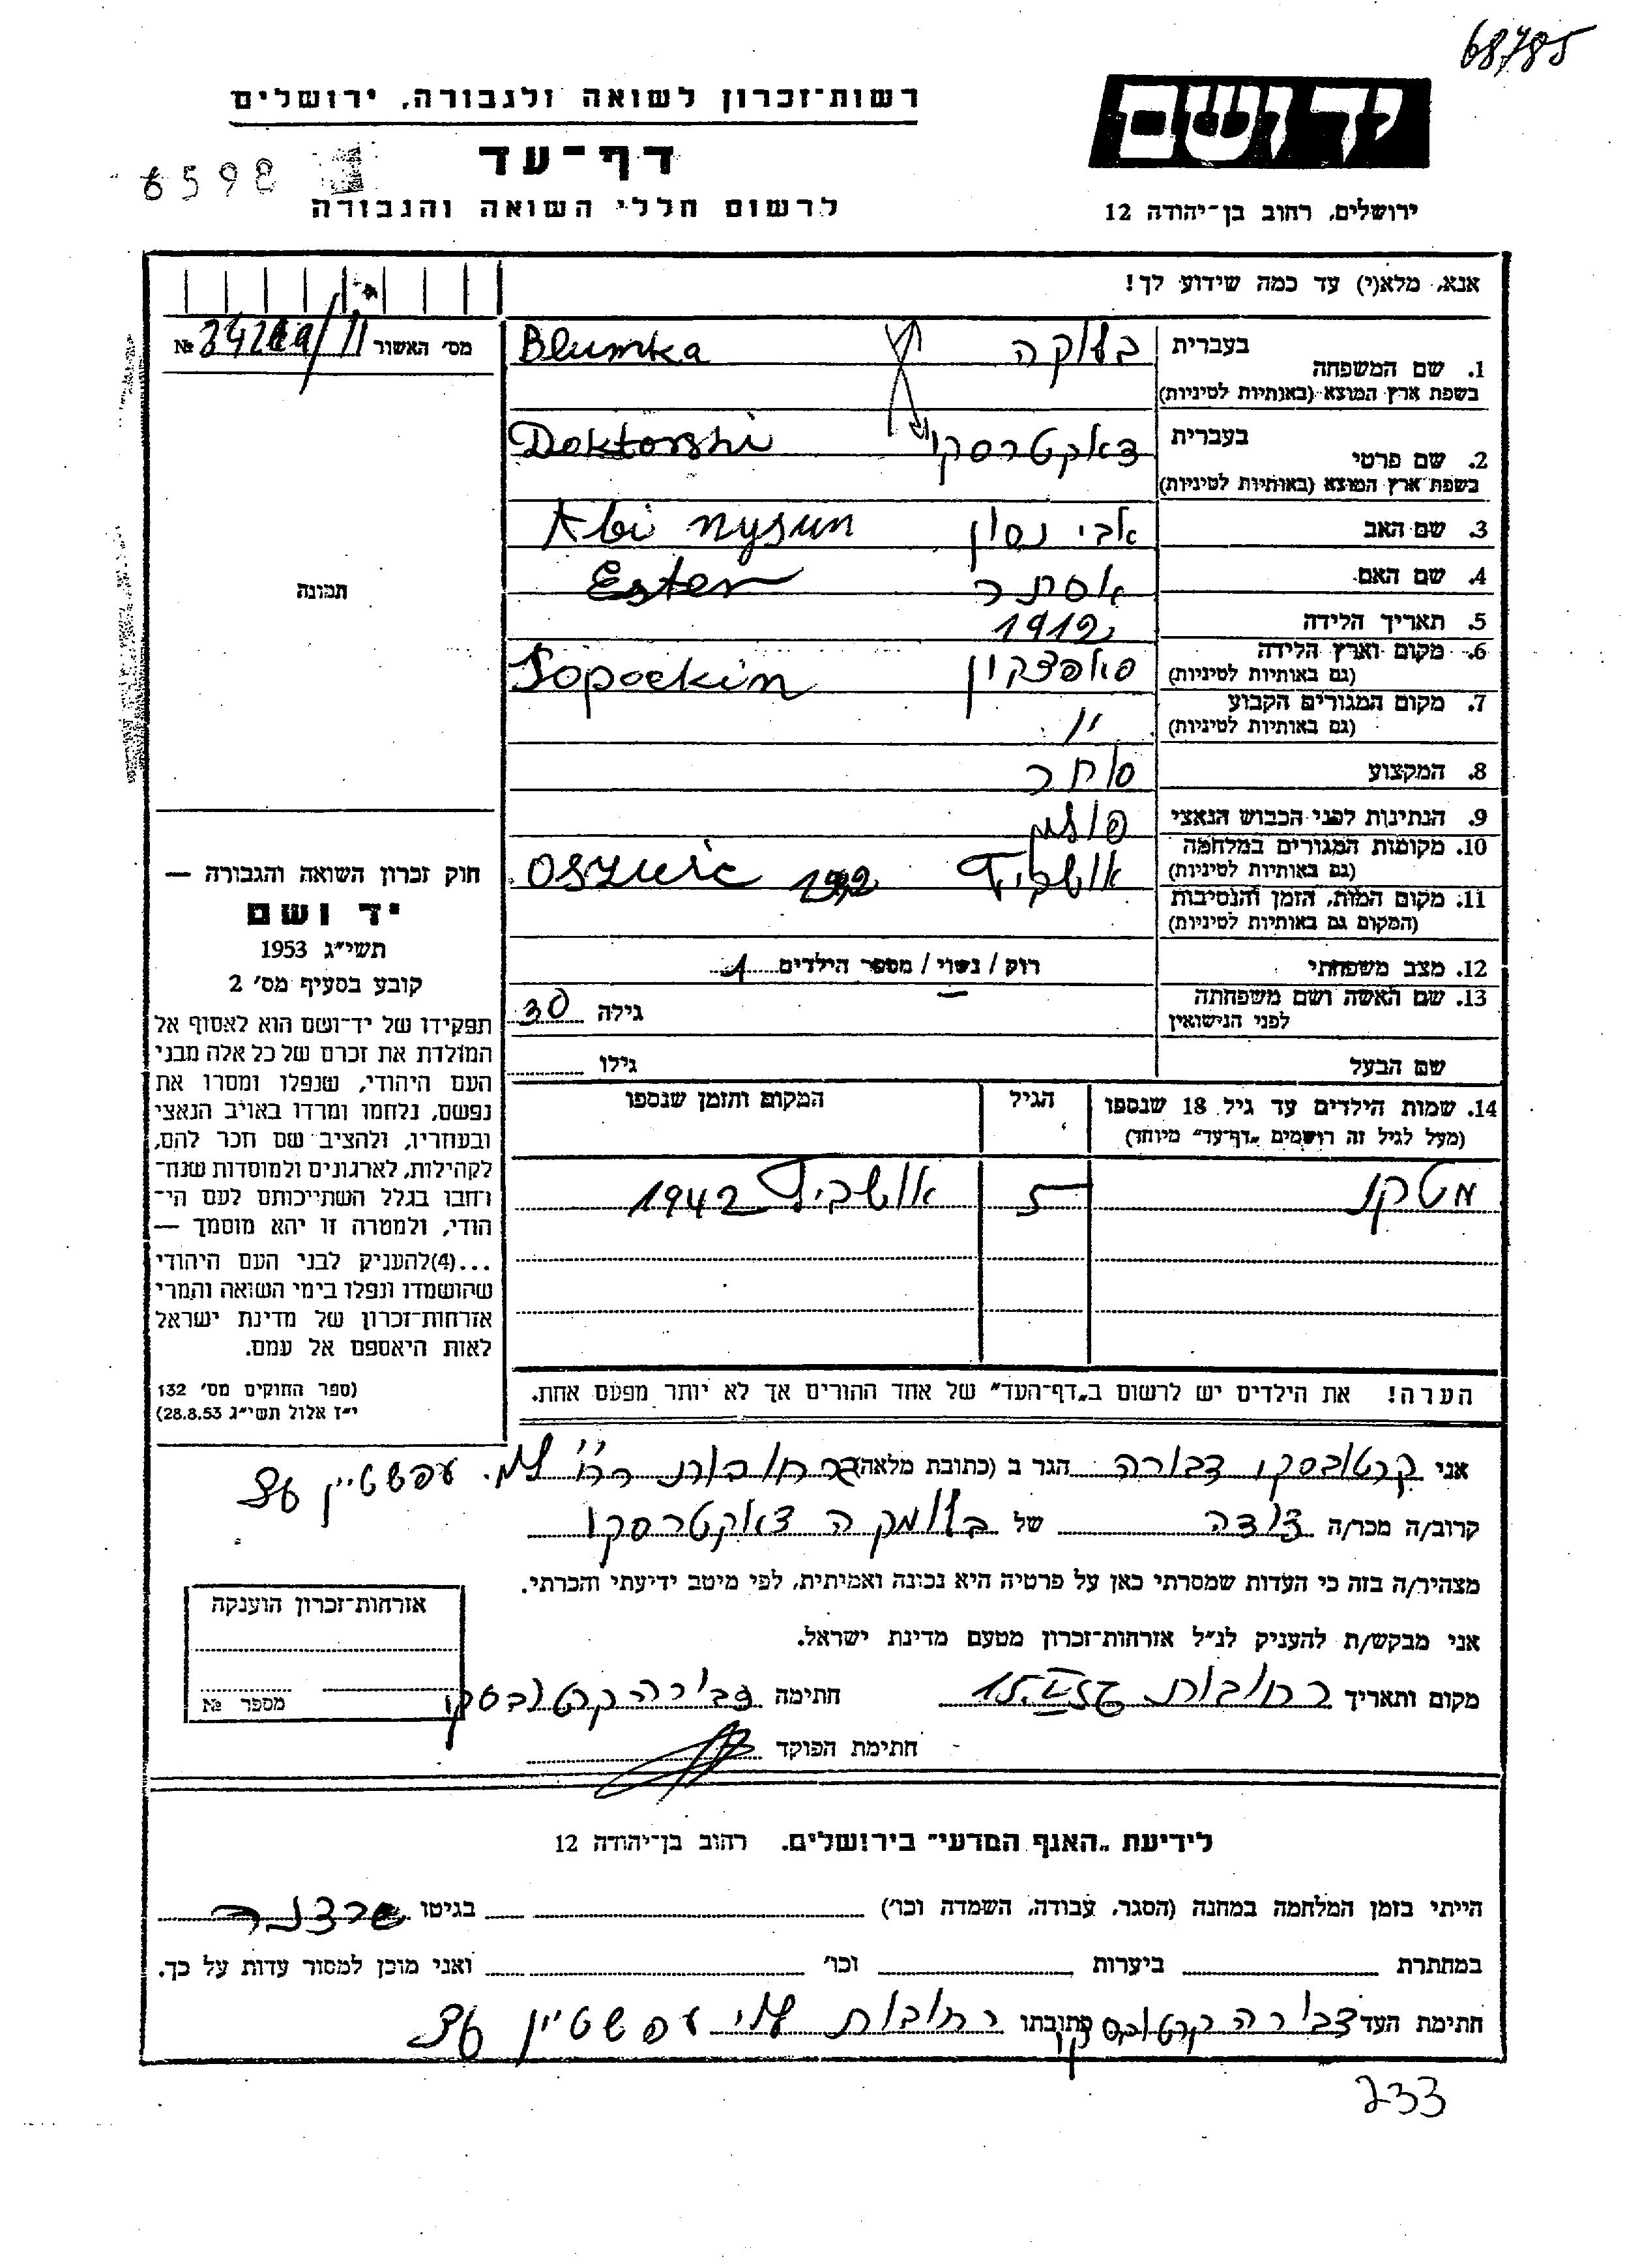 68785
רשות־זכרון לשואה ולגבורה, ירושלים
יד ושם
דף־עד
6598
לרשום חללי השואה והגבורה
ירושלים, רחוב בן־יהודה 12
אנא, מלא(י) עד כמה שידוע לך!
מס׳ האשור №
1. שם המשפחה בעברית בלומקה Blumka
בשפת ארץ המוצא (באותיות לטיניות)
2. שם פרטי בעברית דאקטרסקי Doktorski
בשפת ארץ המוצא (באותיות לטיניות)
3. שם האב אבי נסון Abi nysun
4. שם האם אסתר Ester
5. תאריך הלידה 1912
6. מקום וארץ הלידה Sopockin
(גם באותיות לטיניות)
7. מקום המגורים הקבוע ״
(גם באותיות לטיניות)
8. המקצוע סוחר
9. הנתינות לפני הכבוש הנאצי
10. מקומות המגורים במלחמה
(גם באותיות לטיניות)
אושביץ 1942
11. מקום המות, הזמן והנסיבות
(המקום גם באותיות לטיניות)
12. מצב משפחתי רווק / נשוי / מספר הילדים 1
13. שם האשה ושם משפחתה לפני הנישואין גילה 30
שם הבעל גילו
תמונה
חוק זכרון השואה והגבורה —
יד ושם
תשי״ג 1953
קובע בסעיף מס׳ 2
תפקידו של יד־ושם הוא לאסוף אל
המולדת את זכרם של כל אלה מבני
העם היהודי, שנפלו ומסרו את
נפשם, נלחמו ומרדו באויב הנאצי
ובעוזריו, ולהציב שם וזכר להם,
לקהילות, לארגונים ולמוסדות שנח־
רחבו בגלל השתייכותם לעם הי־
הודי, ולמטרה זו יהא מוסמך —
...(4)להעניק לבני העם היהודי
שהושמדו ונפלו בימי השואה והמרי
אזרחות־זכרון של מדינת ישראל
לאות היאספם אל עמם.
(ספר החוקים מס׳ 132
י״ז אלול תשי״ג 28.8.53)
14. שמות הילדים עד גיל 18 שנספו הגיל המקום והזמן שנספו
(מעל לגיל זה רושמים „דף־עד״ מיוחד)
מטקו 5 אושביץ 1942
הערה! את הילדים יש לרשום ב„דף־העד״ של אחד ההורים אך לא יותר מפעם אחת.
אני קרטובסקי דבורה הגר ב (כתובת מלאה) רחובות עפשטיין
קרוב/ה מכר/ה דודה של בלומקה דאקטרסקי
מצהיר/ה בזה כי העדות שמסרתי כאן על פרטיה היא נכונה ואמיתית, לפי מיטב ידיעתי והכרתי.
אני מבקש/ת להעניק לנ״ל אזרחות־זכרון מטעם מדינת ישראל.
מקום ותאריך רחובות חתימה דבורה קרטובסקי
חתימת הפוקד
אזרחות־זכרון הוענקה
מספר №
לידיעת „האגף המדעי״ בירושלים. רחוב בן־יהודה 12
הייתי בזמן המלחמה במחנה (הסגר, עבודה, השמדה וכו׳) בגיטו
במחתרת ביערות וכו׳ ואני מוכן למסור עדות על כך.
חתימת העד דבורה קרטובסקי כתובתו רחובות עפשטיין
233